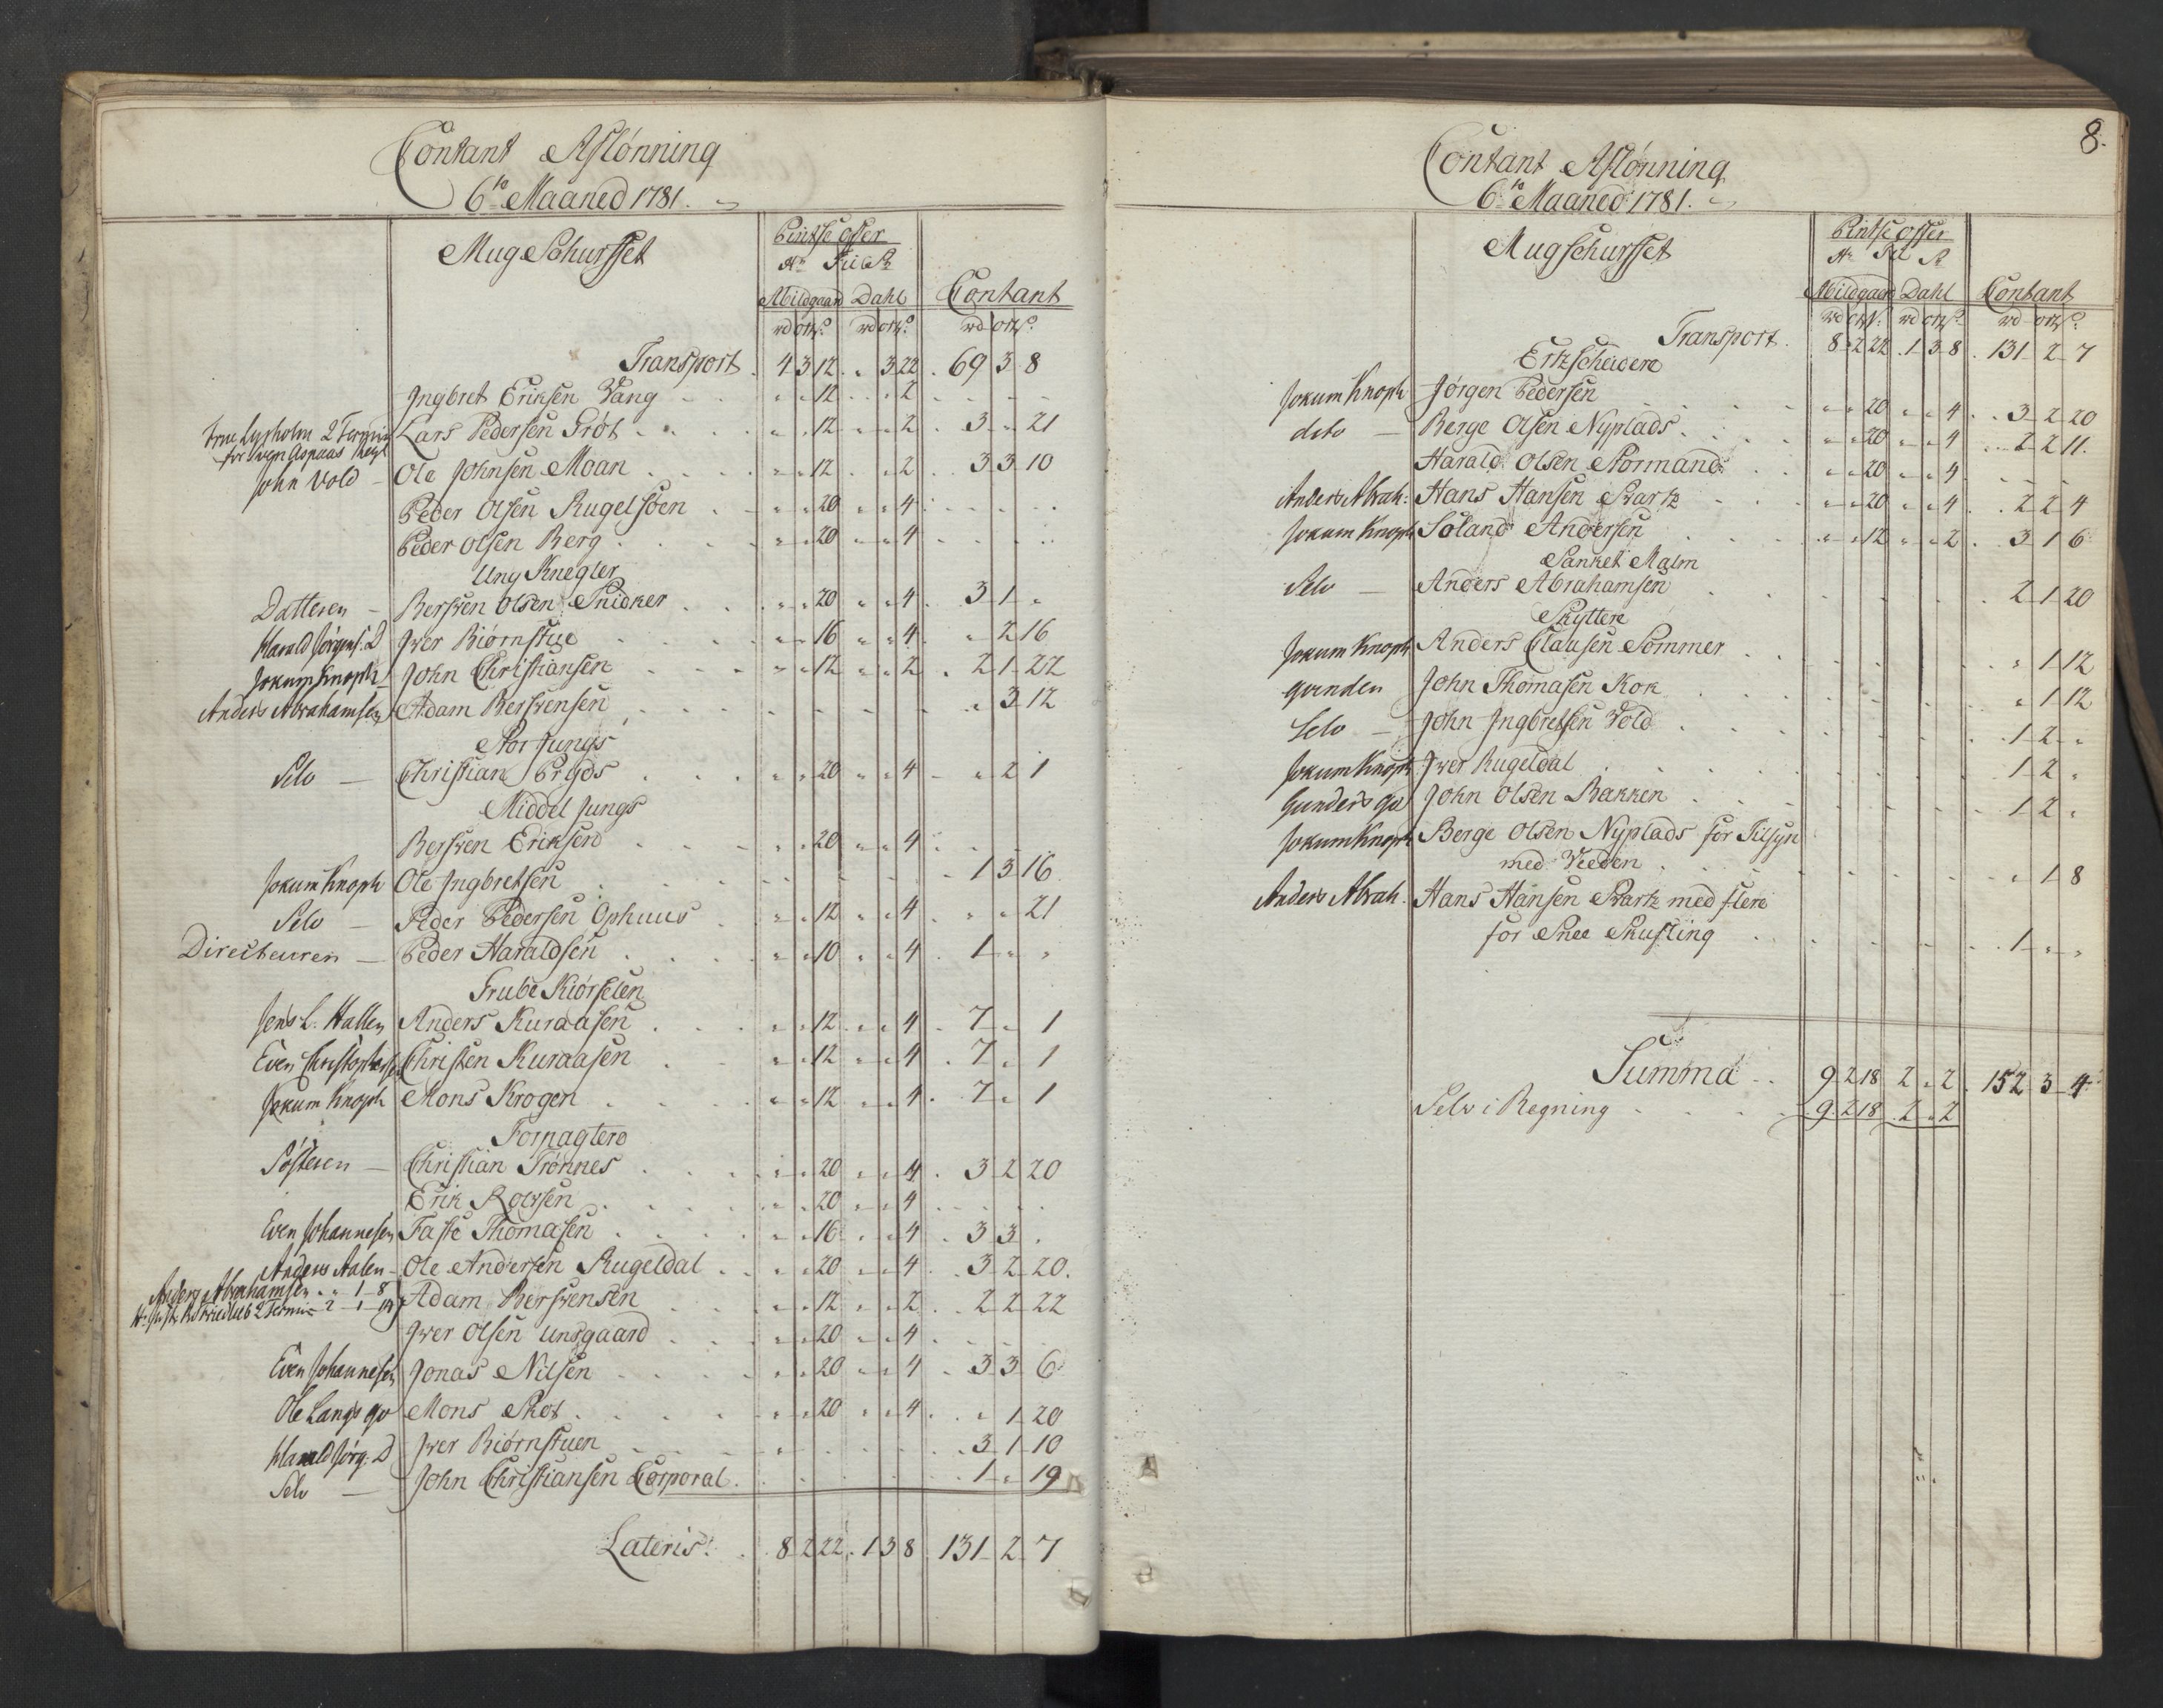 Contant Aflønning
6te Maaned 1781.
Mug Schursset
Pintse offer
Hr
Abildgaard Dahl Contant
rd ort s. rd ort s. rd ort s.
Transport 4 3 12 . „ 3 22 . 69 3 8
Ingbret Eriksen Vang „ „ 12 „ „ 2
Lysholm 2 Termin Lars Pedersen Grøt „ „ 12 „ „ 2 3 „ 21
for Aspaas
John Vold – Ole Johnsen Moan „ „ 12 „ „ 2 3 3 10
Peder Olsen Rugelsøen „ „ 20 „ „ 4
Peder Olsen Berg „ „ 20 „ „ 4
Ung Knegter
Datteren – Berswen Olsen Snidker „ „ 20 „ „ 4 3 1 „
Harald Jørgens. D Iver Biørnstue „ „ 16 „ „ 4 „ 2 16
Jokum Knoph John Christiansen „ „ 12 „ „ 2 2 1 22
Anders Abrahamsen Adam Berswensen „ 3 12
Stor Jungs
Selv — Christian Pryds „ „ 20 „ „ 4 „ 2 1
Middel Jungs
Berswen Eriksen „ „ 20 „ „ 4
Jokum Knoph Ole Ingbretsen 1 3 16
Selv — Peder Pedersen Ophuus „ „ 12 „ „ 4 „ „ 21
Directeuren — Peder Haraldsen „ „ 10 „ „ 4 1 „ „
Grube Kiørselen
Jens L. Hallen Anders Kuraasen „ „ 12 „ „ 4 7 „ 1
Even Christophersen Christen Kuraasen „ „ 12 „ „ 4 7 „ 1
Jokum Knoph Mons Krogen „ „ 12 „ „ 4 7 „ 1
Fornagtere
Søsteren — Christian Trønnes „ „ 20 „ „ 4 3 2 20
Erik Rolvsen „ „ 20 „ „ 4
Even Johannesen Faste Thomasen „ „ 16 „ „ 4 3 3 .
Anders Aalen – Ole Andersen Rugeldal „ „ 20 „ „ 4 3 2 20.
Anders Abrahamsen „ 1 8
2 Termin 2 1 14 Adam Berswensen „ „ 12 „ „ 2 2 2 22
Iver Olsen Unsgaard „ „ 20 „ „ 4
Even Johannesen Jonas Nilsen „ „ 20 „ „ 4 3 3 6
Ole Langs qv Mons Skot „ „ 20 „ „ 4 „ 1 20
Harald Jørg. D Iver Biørnstuen 3 1 10
Selv — John Christiansen Corporal. 1 „ 19
Lateris. 8 2 22 . 1 3 8 . 131 2 7
8.
Contant Aflønning
6te Maaned 1781.
Mugschursset
Pintse offer
Hr
Abildgaard Dahl Contant
rd ort s. rd ort s. rd ort s.
Transport. 8 2 22 . 1 3 8 . 131 2 7
Ertzscheidere
Jokum Knoph Jørgen Pedersen „ „ 20 „ „ 4 3 2 20
dito — Berge Olsen Nyplads „ „ 20 „ „ 4 2 2 11.
Harald Olsen Normand „ „ 20 „ „ 4
Anders Abrah: Hans Hansen Svartz „ „ 20 „ „ 4 2 2 4
Jokum Knoph Søland Andersen „ „ 12 „ „ 2 3 1 6
Sanket Malm
Selv — Anders Abrahamsen 2 1 20
Skyttere
Jokum Knoph Anders Clausen Sommer „ 1 12
qvinden John Thomasen Kok „ 1 12
Selv — John Ingbretsen Vold 1 2 „
Jokum Knoph Iver Rugeldal 1 2 „
Gunders qv John Olsen Bakken 1 2 „
Jokum Knoph Berge Olsen Nyplads for Tilsyn
med Veeden „ 1 8
Anders Abrah. Hans Hansen Svartz med flere
for Snee Skufling 1 „ „
Summa 9 2 18 2 „ 2 . 152 3 4
Selv i Regning 9 2 18 2 „ 2